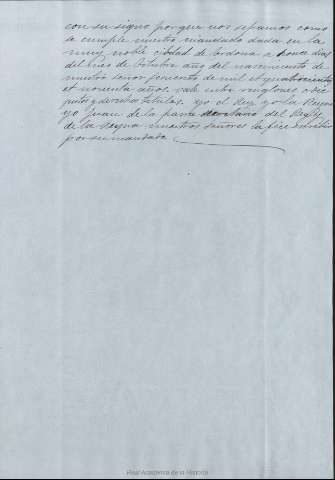 con su signo porque nos sepamos como
se cumple nuestro mandado dada en la
muy noble cibdad de Cordova a honce dias
del mes de Octubre año del nascimiento de
nuestro señor Jesucristo de mil et quatrocientos
et noventa años. vala entre renglones o diz
yo el Rey yo la Reyna
yo Juan de la parra secretario del Rey y
de la Reyna nuestros señores la fice escribir
por su mandado
Real Academia de la Historia